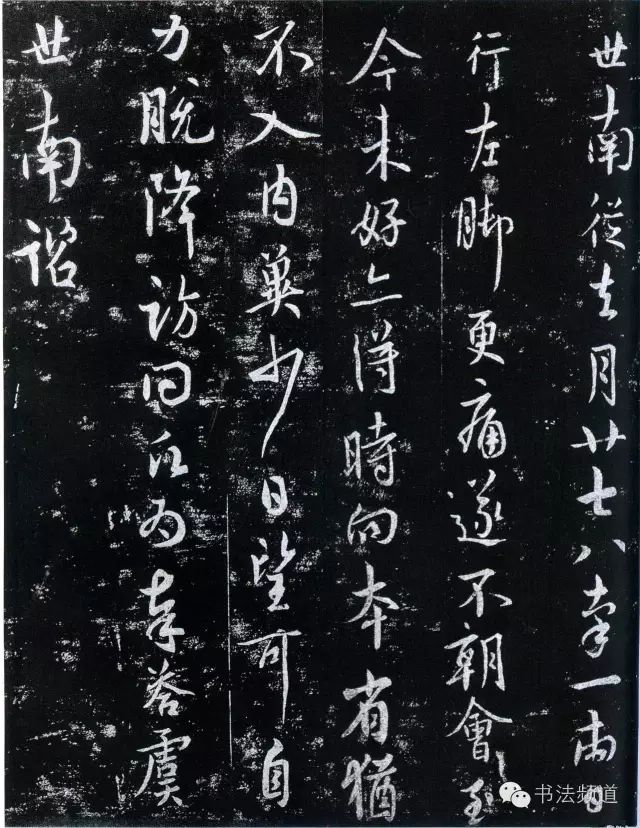 世南從去月廿七八牽一兩日
行左脚更痛遂不朝會至
今未好亦得時向本省猶
不入内冀少日望可自
力脱降訪問願為奉答虞
世南諮
书法频道